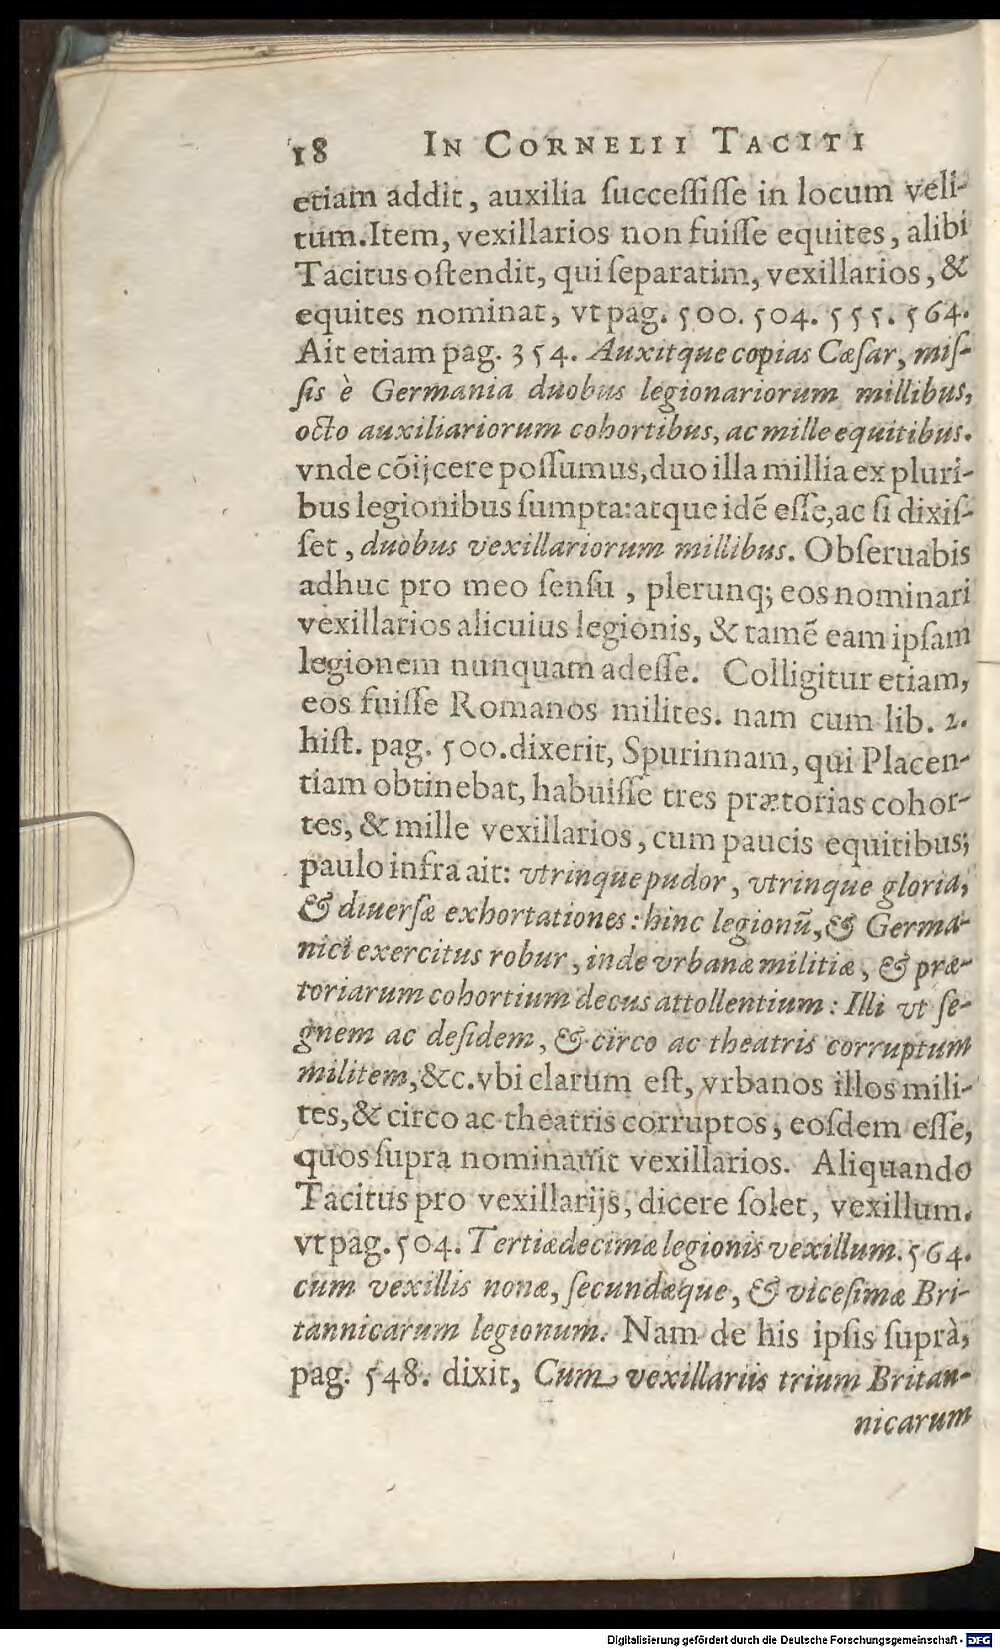 18 IN CORNELII TACITI
etiam addit, auxilia ſucceſſiſſe in locum veli-
tum. Item, vexillarios non fuiſſe equites, alibi
Tacitus oſtendit, qui ſeparatim, vexillarios, &
equites nominat, vt pag. 500. 504. 555. 564.
Ait etiam pag. 354. Auxitque copias Cæſar, miſ-
ſis è Germania duobus legionariorum millibus,
octo auxiliariorum cohortibus, ac mille equitibus.
vnde cõijcere poſſumus, duo illa millia ex pluri-
bus legionibus ſumpta: atque idẽ eſſe, ac ſi dixiſ-
ſet, duobus vexillariorum millibus. Obſeruabis
adhuc pro meo ſenſu, plerunq; eos nominari
vexillarios alicuius legionis, & tamẽ eam ipſam
legionem nunquam adeſſe. Colligitur etiam,
eos fuiſſe Romanos milites. nam cum lib. 2.
hiſt. pag. 500. dixerit, Spurinnam, qui Placen-
tiam obtinebat, habuiſſe tres prætorias cohor-
tes, & mille vexillarios, cum paucis equitibus;
paulo infra ait: vtrinque pudor, vtrinque gloria,
& diuerſæ exhortationes: hinc legionũ, & Germa-
nici exercitus robur, inde vrbanæ militiæ, & præ-
toriarum cohortium decus attollentium: Illi vt ſe-
gnem ac deſidem, & circo ac theatris corruptum
militem, &c. vbi clarum eſt, vrbanos illos mili-
tes, & circo ac theatris corruptos, eoſdem eſſe,
quos ſupra nominauit vexillarios. Aliquando
Tacitus pro vexillarijs, dicere ſolet, vexillum.
vt pag. 504. Tertiædecimæ legionis vexillum. 564.
cum vexillis nonæ, ſecundæque, & viceſimæ Bri-
tannicarum legionum. Nam de his ipſis ſuprà,
pag. 548. dixit, Cum vexillariis trium Britan-
nicarum
Digitalisierung gefördert durch die Deutsche Forschungsgemeinschaft - DFG